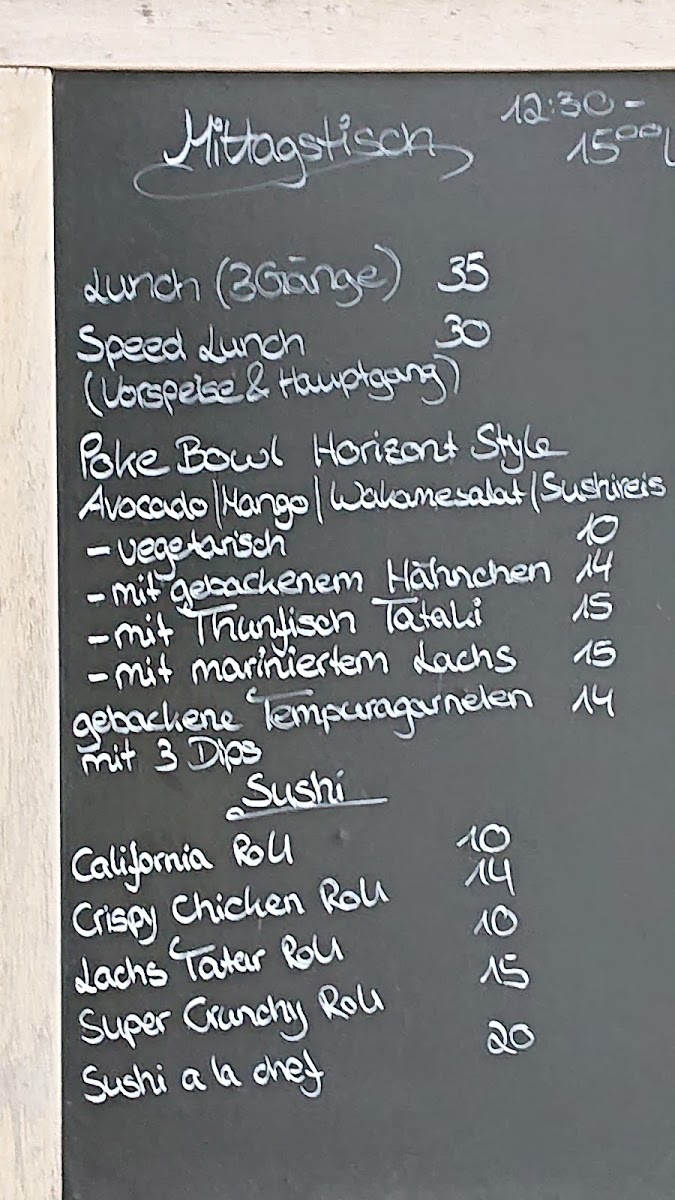 Mittagstisch 12:30-
15⁰⁰ U
Lunch (3Gänge) 35
Speed Lunch 30
(Vorspeise & Hauptgang)
Poke Bowl Horizont Style
Avocado|Mango|Wakamesalat|Sushireis
- vegetarisch 10
- mit gebackenem Hähnchen 14
- mit Thunfisch Tataki 15
- mit mariniertem Lachs 15
gebackene Tempuragarnelen 14
mit 3 Dips
Sushi
California Roll 10
Crispy Chicken Roll 14
Lachs Tatar Roll 10
Super Crunchy Roll 15
Sushi a la chef 20